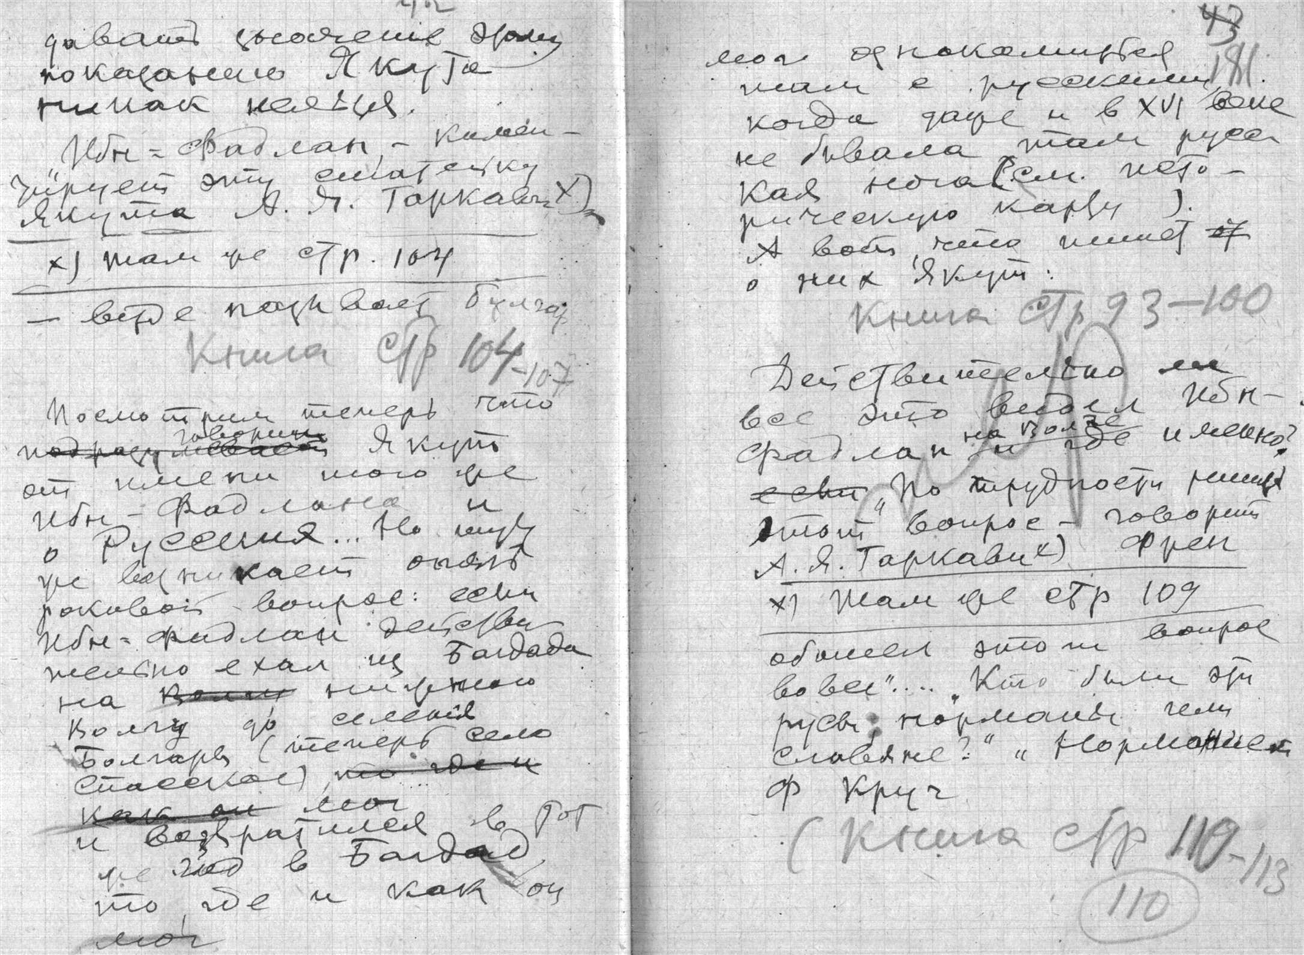 давать значение этому
показанию Якута
никак нельзя.
Ибн-Фадлан, - комен-
тирует эту статейку
Якута А. Я. Гаркави х)
х) там же стр. 104
— везде называет булгар
Книга стр 104-107
Посмотрим теперь что
говорит
подразумевает Якут
от имени того же
Ибн-Фадлана и
о Руссения... Но тут
же возникает опять
роковой вопрос: если
Ибн-Фадлан действи
тельно ехал из Багдада
на Волгу нижнюю
Волгу до селения
Болгары (теперь село
Спасское) то где и
как он мог
и возвратился в тот
же год в Багдад
то где и как он
мог
43
181
мог познакомиться
там с русскими,
когда даже и в XVI веке
не бывала там русс
кая нога (см. исто-
рическую карту).
А вот что пишет
о них Якут:
Книга стр 93-100
Действительно ли
все это видел Ибн-
на Волге
Фадлан и где именно?
если „По трудности решить
этот вопрос - говорит
А. Я. Гаркави х) Френ
х) Там же стр 109
обошел этот вопрос
вовсе".... „Кто были эти
русы: норманы или
славяне?" „
Ф Круг
(Книга стр 110-113
110